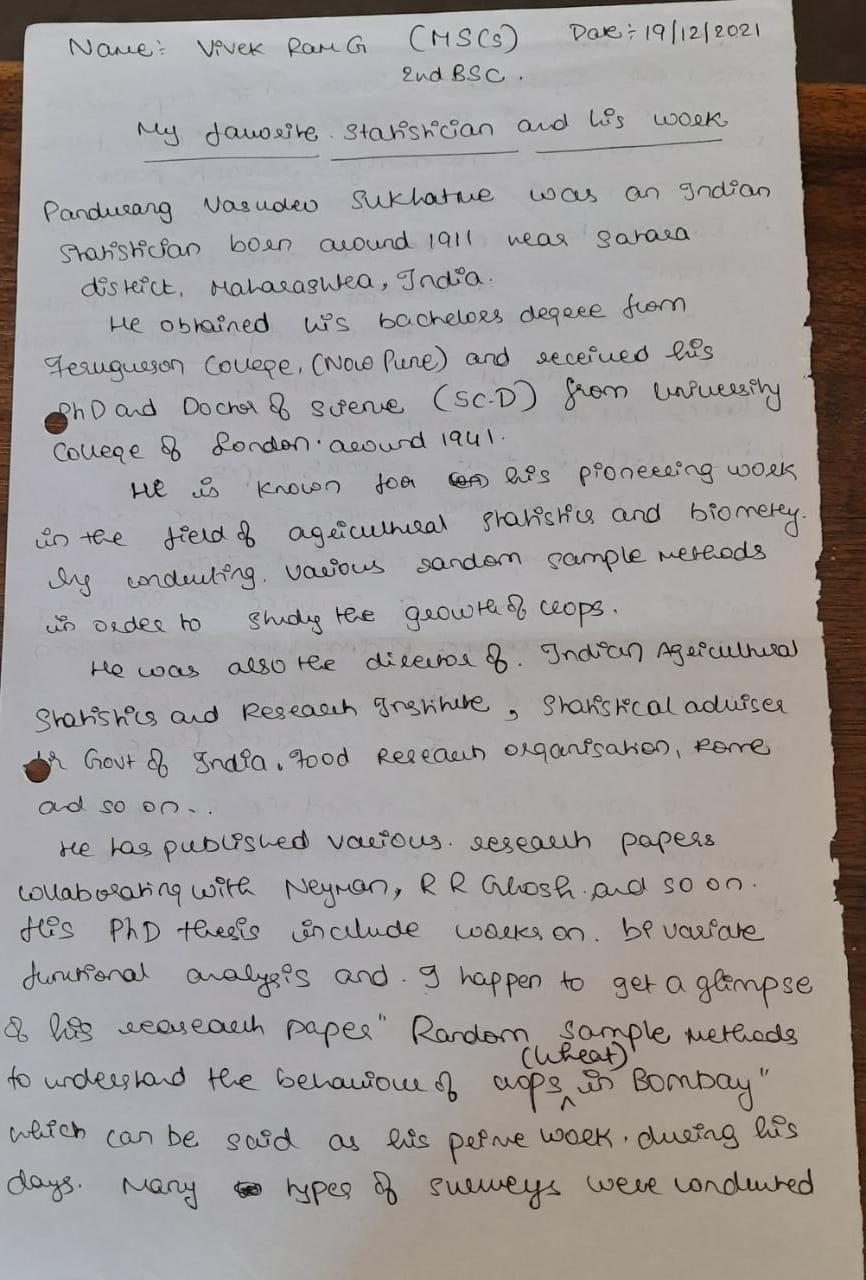 Name:- Vivek Ram G (MSCs) Date:- 19/12/2021
2nd BSC.
My favorite statistician and his work
Pandurang Vasudev Sukhatme was an Indian
Statistician born around 1911 near Satara
district, Maharashtra, India.
He obtained his bachelors degree from
Ferugueson College, (Now Pune) and received his
PhD and Doctor of Science (SC.D) from University
College of London. around 1941.
He is known for his pioneering work
in the field of agricultural statistics and biometry.
by conducting. various random sample methods
in order to study the growth of crops.
He was also the director of. Indian Agricultural
Statistics and Research Institute, Statistical adviser
Govt of India, Food Research organisation, Rome
and so on..
He has published various. research papers
collaborating with Neyman, R R Ghosh. and so on.
His PhD thesis include works on. bi variate
functional analysis and. I happen to get a glimpse
of his reaseach paper "Random sample methods
to understand the behaviour of crops (wheat) in Bombay"
which can be said as his prime work. during his
days. Many types of surveys were conducted